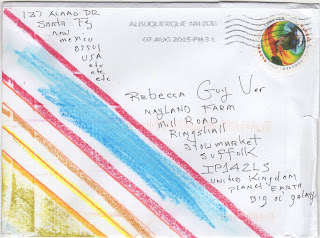 137 ALAMO DR
Santa Fe,
new
mexico
87501
USA
etc
etc,
etc
ALBUQUERQUE NM 870
07 AUG 2015 PM 3 L
Rebecca Guy Ver
WAYLAND FARM
Mill ROAD
Ringshall
STOWMARKET
SUFFOLK
IP142LS
UNITED KINGDOM
PLANET EARTH
Big ol' galaxy